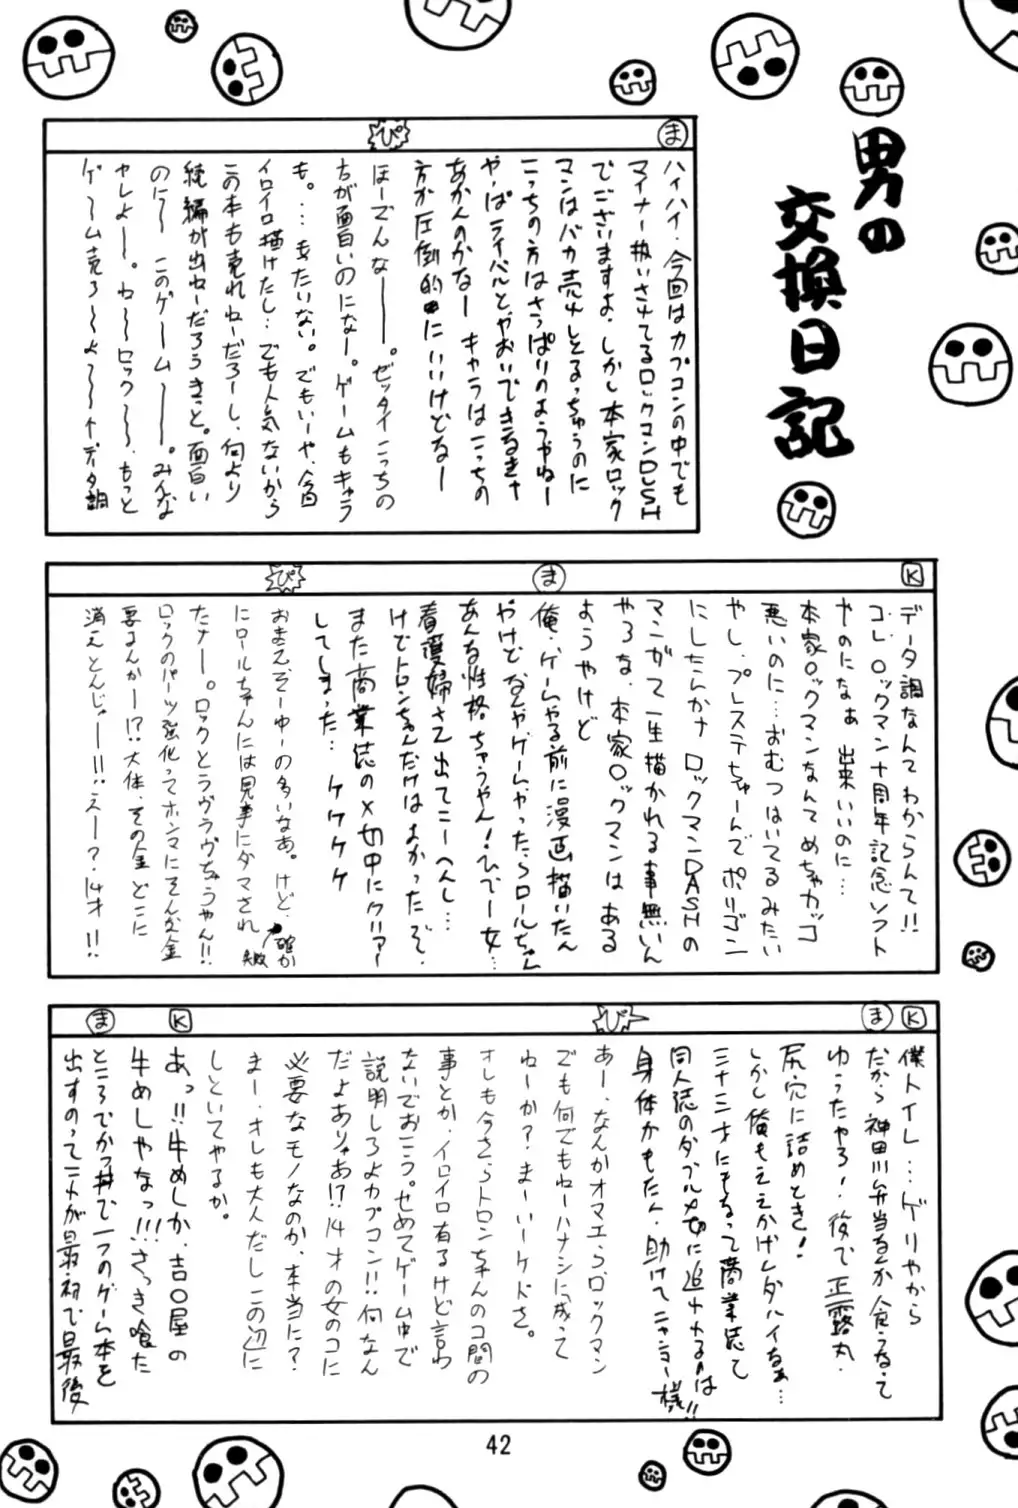 男の
交換日記
ま
ハイハイ、今回はカプコンの中でも
マイナー扱いされてるロックマンDASH
でございますよ。しかし本家ロック
マンはバカ売れしとるっちゅうのに
こっちの方はさっぱりのようやねー
やっぱライバルとやおいできるきゃ
あかんのかなー キャラはこっちの
方が圧倒的にいいけどなー
ぴ
ほーでんなーー。ゼッタイこっちの
ちが面白いのになー。ゲームもキャラ
も。…もったいない。でもいーや、今回
イロイロ描けたし…でも人気ないから
この本も売れねーだろーし、何より
続編が出ねーだろうきっと。面白い
のに〜 このゲームーー。みんな
ヤレよー。ね〜ロック〜、もっと
ゲ〜ム売ろ〜よ〜〜↑データ調
K
データ調なんてわからんて!!
コレ、ロックマン十周年記念ソフト
やのになぁ 出来いいのに…
本家ロックマンなんてめちゃカッコ
悪いのに…おむつはいてるみたい
やし、プレステちゃーんでポリゴン
にしたらんかナ ロックマンDASHの
マンガて一生描かれる事無いん
やろな、本家ロックマンはある
ようやけど
ま
俺、ゲームやる前に漫画描いたん
やけど なんやゲームやったらロールちゃん
あんな性格ちゃうやん!ひでー女…
看護婦さん出てこーへんし…
けどトロンちゃんだけはよかったぞ。
また商業誌の〆切中にクリアー
してしまった… ケケケケ
ぴ
おまえそーゆーの多いなあ。けど、確か
にロールちゃんには見事にダマされ
たナー。ロックとラヴラヴちゃうやん!!
ロックのパーツ強化ってホンマにそんな金
要るんかー!?大体、その金 どこに
消えとんじゃー!!えー?14才!!
K
僕トイレ…ゲリやから
ま
だから神田川弁当なんか食うなって
ゆったやろ!後で正露丸
尻穴に詰めとき!
しかし俺もええかげんダハイなぁ…
三十三才にもなって商業誌て
同人誌のダブル〆切に追われるのは!!
身体がもたん、助けてニャンコー様
ぴ
あー、なんかオマエら、ロックマン
でも何でもねーハナシに成って
ねーか?まーいーケドさ。
オレも今さらトロンちゃんのコ間の
事とか、イロイロ有るけど言わ
ないでおこう。せめてゲーム中で
説明しろよカプコン!!何なん
だよありゃあ!?14才の女のコに
必要なモノなのか、本当に?
まー、オレも大人だしこの辺に
しといてやるか。
K
あっ!!牛めしか、吉○屋の
牛めしやなっ!!!さっき喰た
ま
ところでかつ丼で一つのゲーム本を
出すのってコレが最初で最後
42